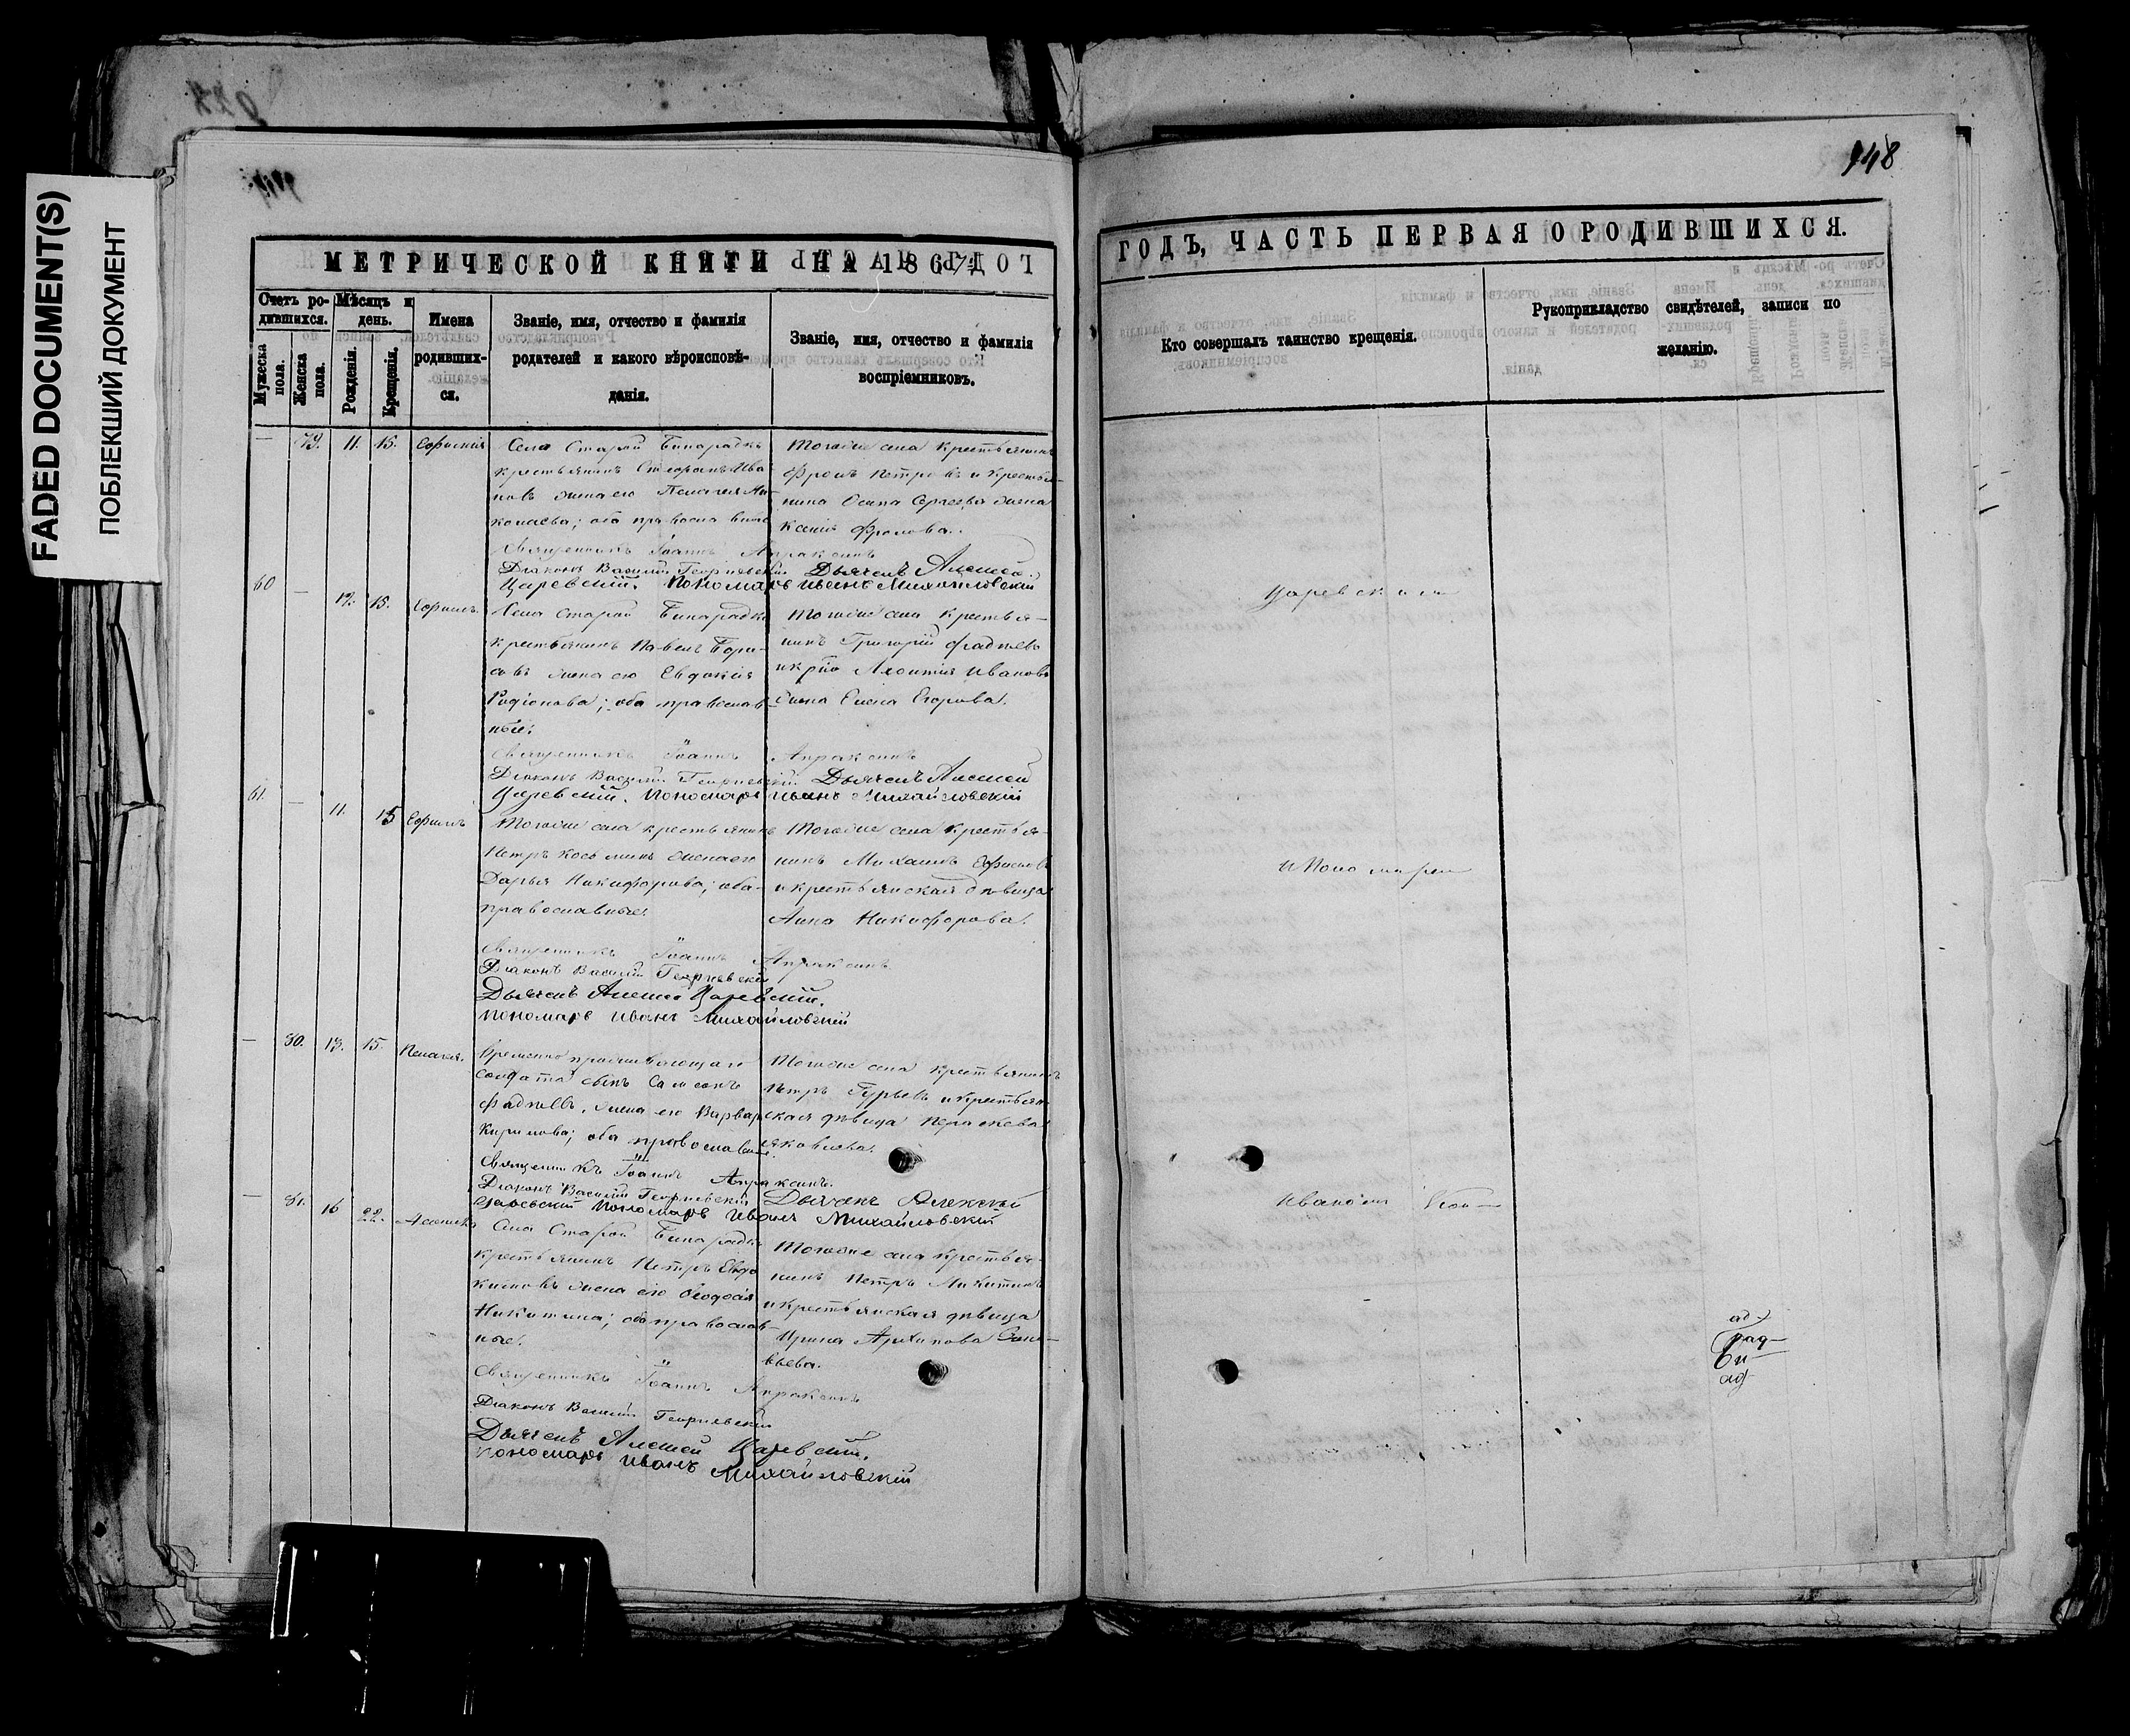 FADED DOCUMENT(S)
ПОБЛЕКШИЙ ДОКУМЕНТ
948
МЕТРИЧЕСКОЙ КНИГИ НА 1867
ГОДЪ, ЧАСТЬ ПЕРВАЯ О РОДИВШИХСЯ.
Счетъ ро-
дившихся.
Мужеска
пола.
Женска
пола.
Мѣсяцъ и
день.
Рожденія.
Крещенія.
Имена
родивших-
ся.
Званіе, имя, отчество и фамилія
родителей и какого вѣроисповѣ-
данія.
Званіе, имя, отчество и фамилія
воспріемниковъ.
Кто совершалъ таинство крещенія.
Рукоприкладство свидѣтелей, записи по
желанію.
— 79. 11. 15. Ефимія
Села Старой Бинарадки
крестьянинъ Ива
новъ жена его Пелагея Ни
колаева; оба православные
Тогоже села крестьянинъ
Фролъ Петровъ и крестья-
нина Осипа Сергеева жена
Ксенія Фролова.
Священникъ Іоаннъ Апраксинъ
Діаконъ Василій Георгіевскій Дьячекъ Алексей
Царевскій. Пономарь Иванъ Михайловскій
60 — 12. 15. Ефимъ
Села Старой Бинарадки
крестьянинъ Павелъ Бори-
совъ жена его Евдокія
Родіонова; оба православ-
ные.
Тогоже села крестья-
нинъ Григорій Фадѣевъ
Иванова
жена Елена Егорова.
Священникъ Іоаннъ Апраксинъ
Діаконъ Василій Георгіевскій Дьячекъ Алексей
Царевскій. Пономарь Иванъ Михайловскій
61. — 11. 15 Ефимъ
Тогоже села крестьянинъ
Петръ Козьминъ жена его
Дарья Никифорова; оба
православные.
Тогоже села крестья-
нинъ Михаилъ Ефимовъ
и крестьянская дѣвица
Анна Никифорова.
Священникъ Іоаннъ Апраксинъ
Діаконъ Василій Георгіевскій
Дьячекъ Алексей Царевскій.
Пономарь Иванъ Михайловскій
— 80. 13. 15. Пелагея.
Временно проживающаго
солдата сынъ Самсонъ
Фадѣевъ, жена его Варвара
Кирилова; оба православные.
Тогоже села крестьянинъ
Петръ Гурьевъ и крестьян-
ская дѣвица
Яковлева.
Священникъ Іоаннъ Апраксинъ.
Діаконъ Василій Георгіевскій Дьячекъ Алексѣй
Царевскій Пономарь Иванъ Михайловскій
— 81. 16 22.
Села Старой Бинарадки
крестьянинъ Петръ Евдо
кимовъ жена его Ѳеодосія
Никитина; оба православ-
ные.
Тогоже села крестья-
нинъ Петръ Никитинъ
и крестьянская дѣвица
Ирина Архипова
Священникъ Іоаннъ Апраксинъ
Діаконъ Василій Георгіевскій
Дьячекъ Алексей Царевскій.
Пономарь Иванъ Михайловскій